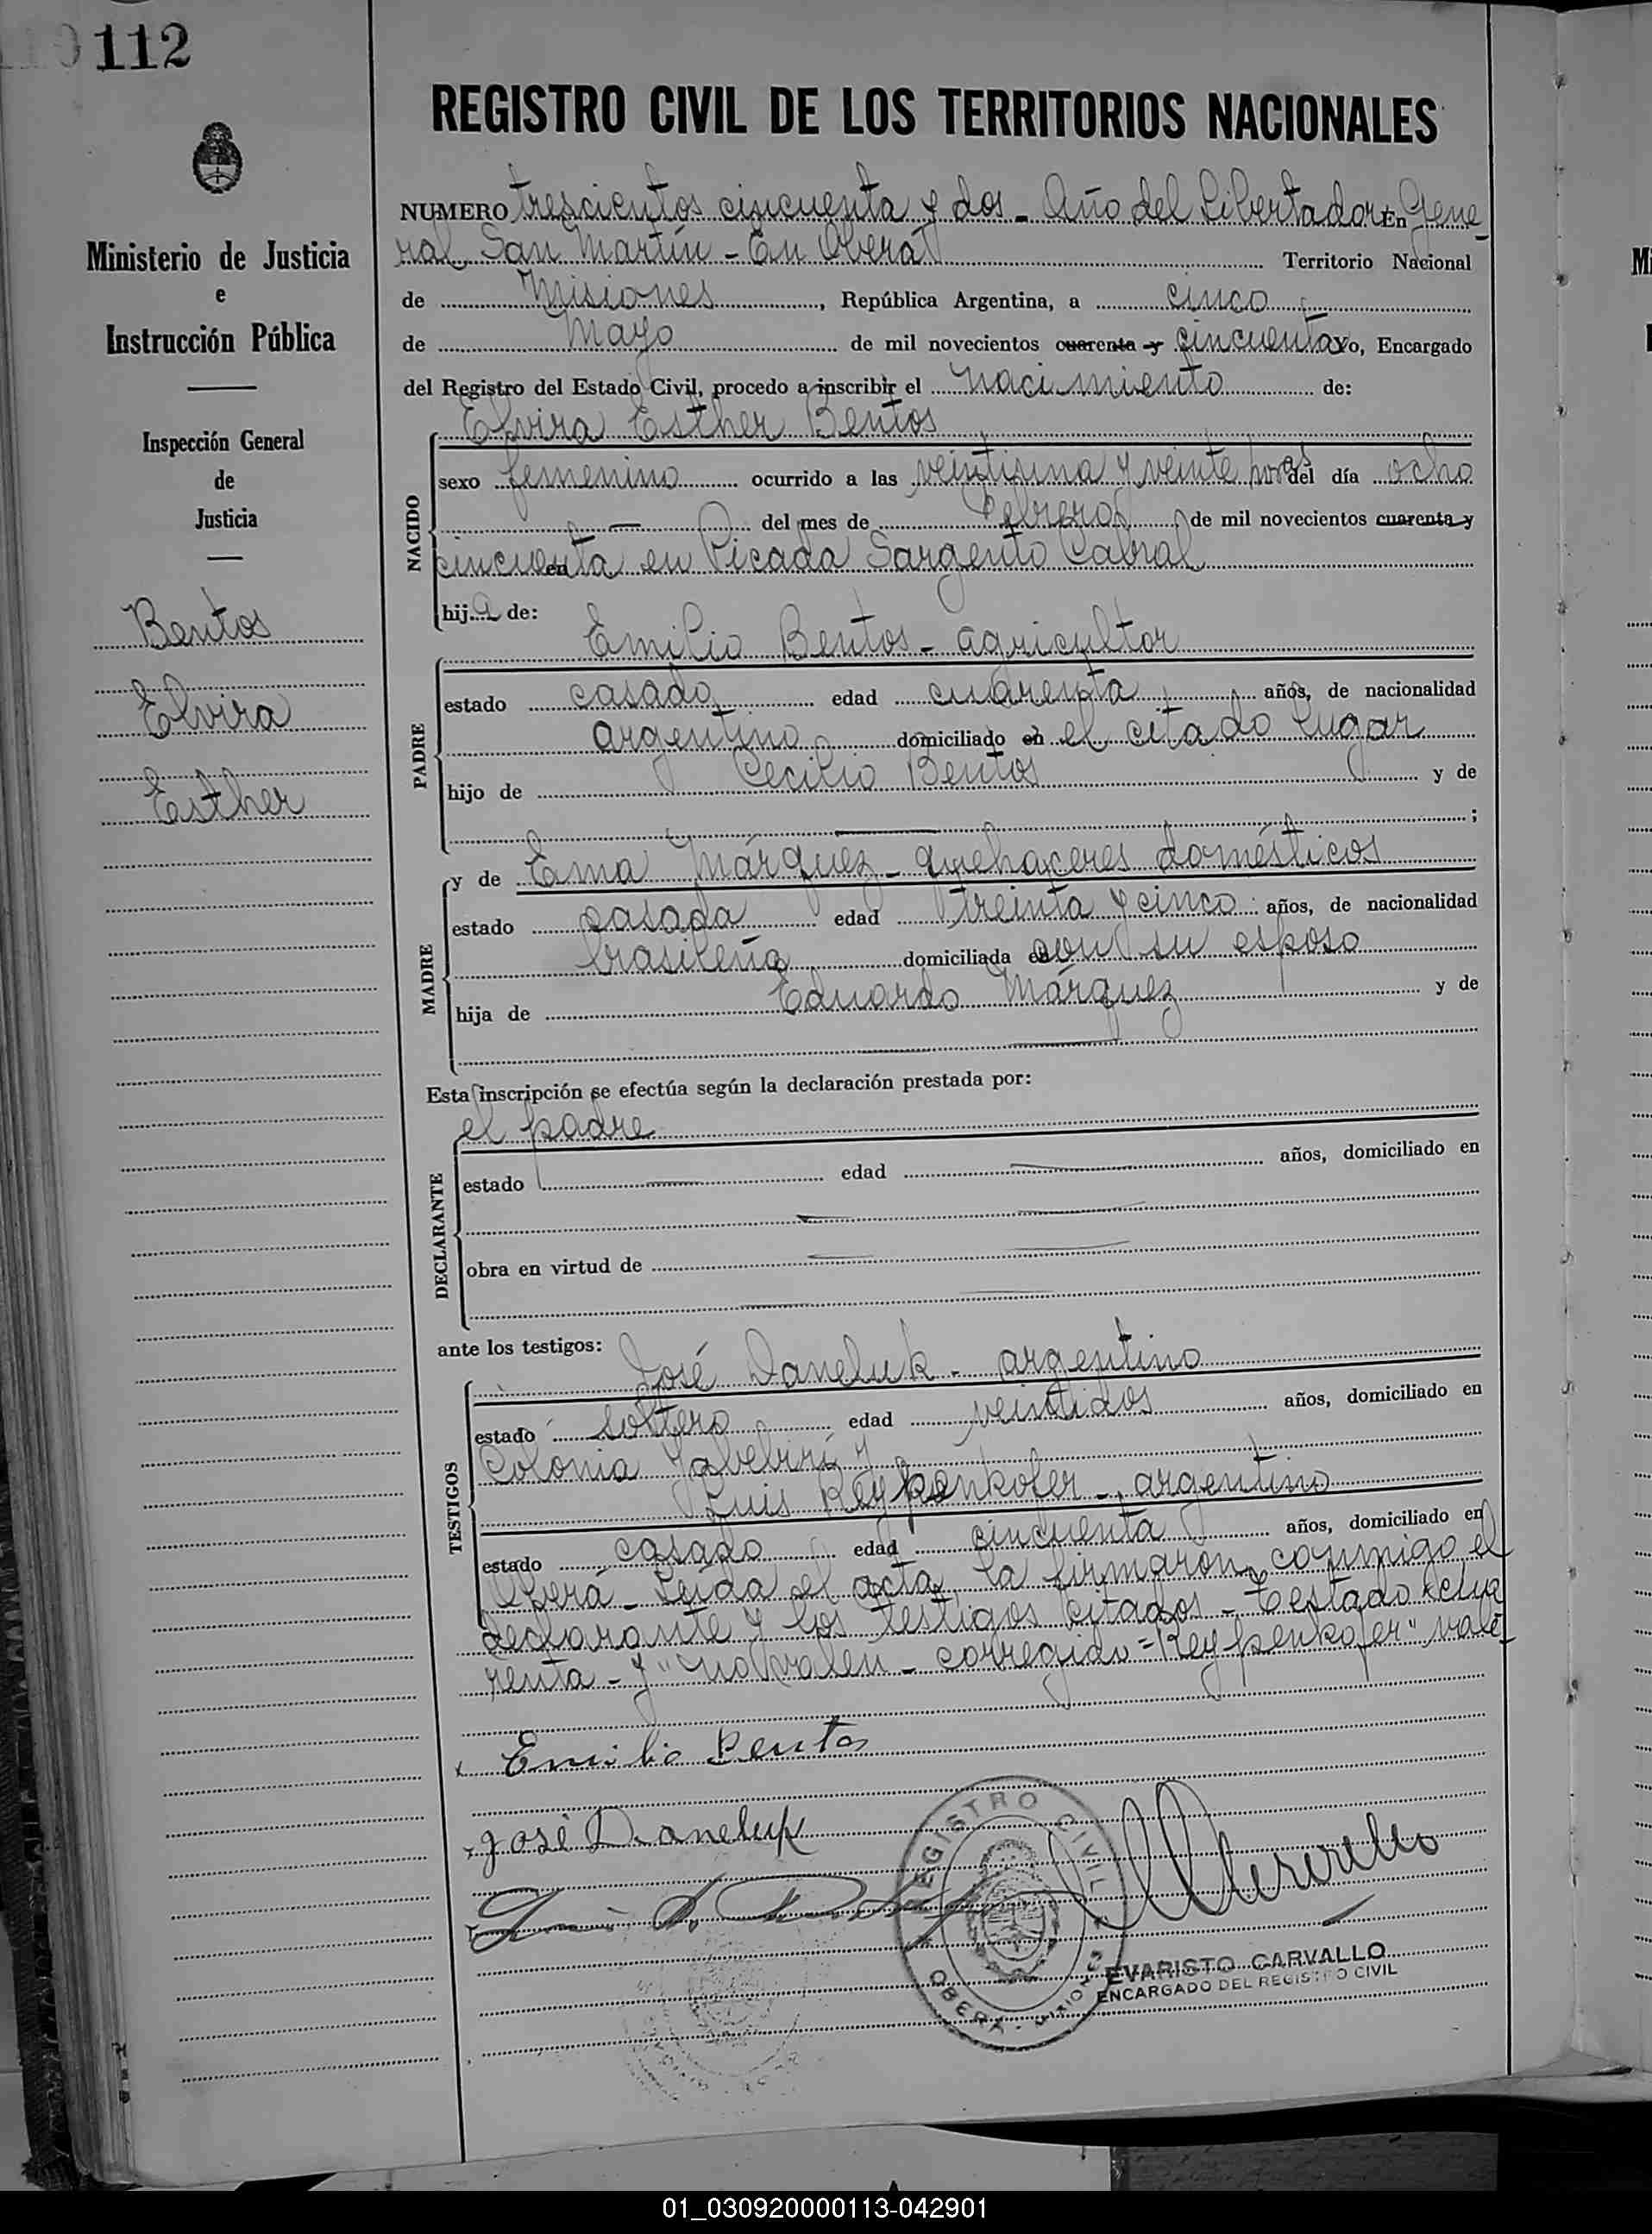 112
REGISTRO CIVIL DE LOS TERRITORIOS NACIONALES
Ministerio de Justicia
e
Instrucción Pública
Inspección General
de
Justicia
Bentos
Elvira
Esther
NUMERO trescientos cincuenta y dos - Año del Libertador En Gene-
ral San Martín - En Oberá Territorio Nacional
de Misiones, República Argentina, a cinco
de Mayo de mil novecientos cuarenta y cincuenta Yo, Encargado
del Registro del Estado Civil, procedo a inscribir el nacimiento de:
NACIDO
Elvira Esther Bentos
sexo femenino ocurrido a las veintiuna y veinte horas del día ocho
— del mes de Febrero de mil novecientos cuarenta y
cincuenta en Picada Sargento Cabral
hija de:
PADRE
Emilio Bentos - agricultor
estado casado edad cuarenta años, de nacionalidad
argentino domiciliado en el citado lugar
hijo de Cecilio Bentos y de
;
MADRE
y de Ema Márquez - quehaceres domésticos
estado casada edad treinta y cinco años, de nacionalidad
brasileña domiciliada con su esposo
hija de Eduardo Márquez y de
Esta inscripción se efectúa según la declaración prestada por:
DECLARANTE
el padre
estado — edad — años, domiciliado en
obra en virtud de
ante los testigos:
TESTIGOS
José Daneluk - argentino
estado soltero edad veintidos años, domiciliado en
Colonia Yabebirí y
Luis Reypenkofer - argentino
estado casado edad cincuenta años, domiciliado en
Oberá - Leída el acta, la firmaron conmigo el
declarante y los testigos citados - Testado "cua
renta - y" no valen - corregido = Reypenkofer" vale-
Emilio Bentos
José Daneluk
REGISTRO CIVIL
OBERÁ - MISIONES
EVARISTO CARVALLO
ENCARGADO DEL REGISTRO CIVIL
01_030920000113-042901